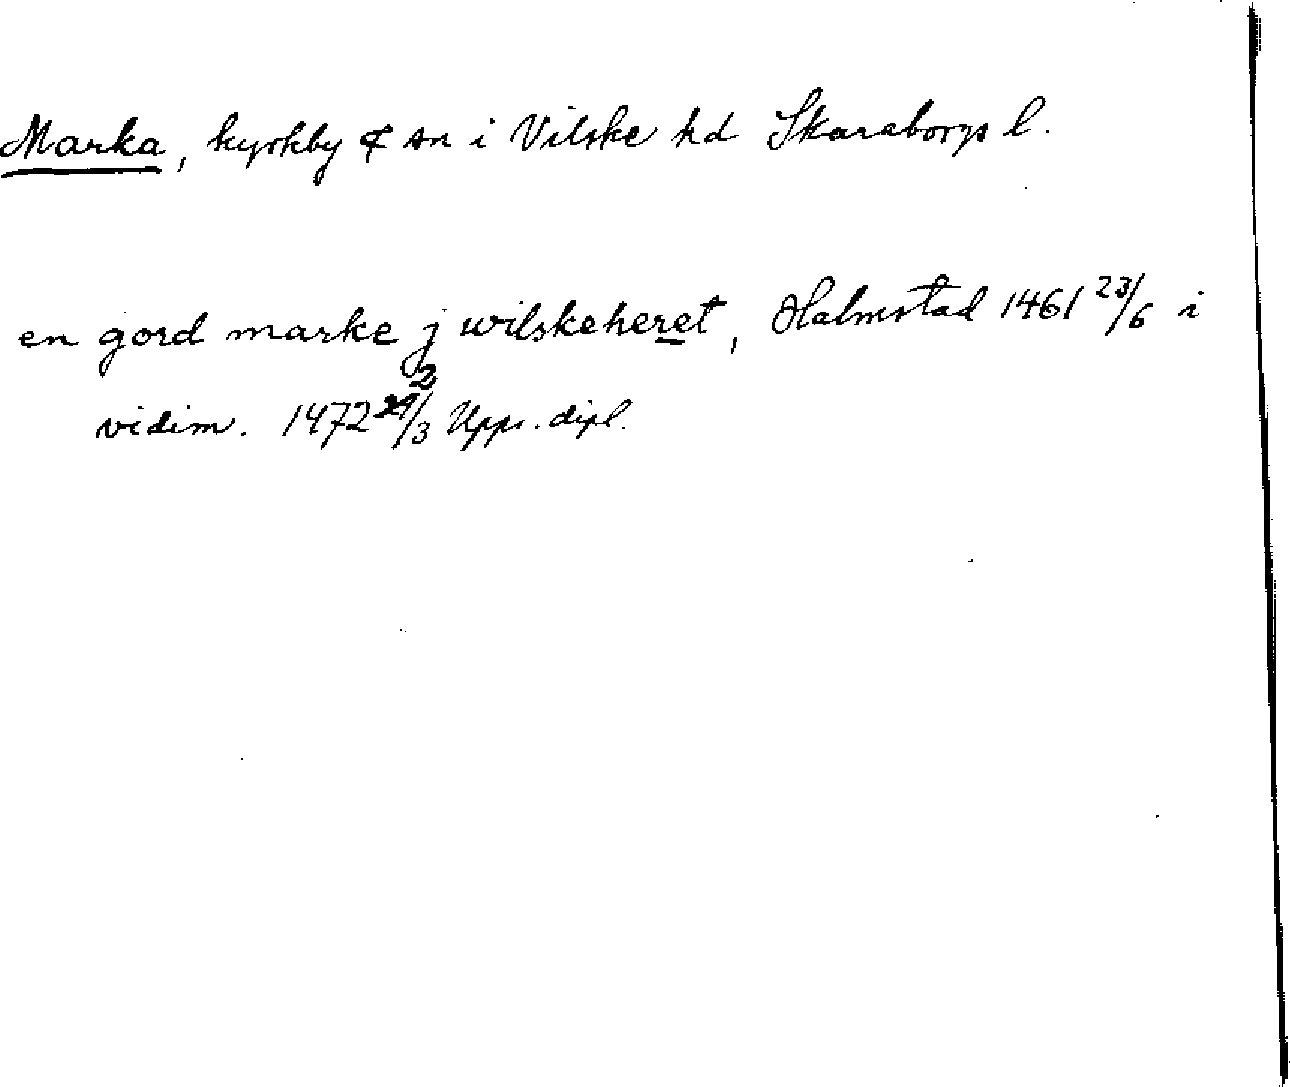 Marka, kyrkby & sn i Vilske hd Skaraborgs l.
en gord marke j wilskeheret, Halmstad 1461 23/6 i
vidim. 1472 2/3 Upps. dipl.